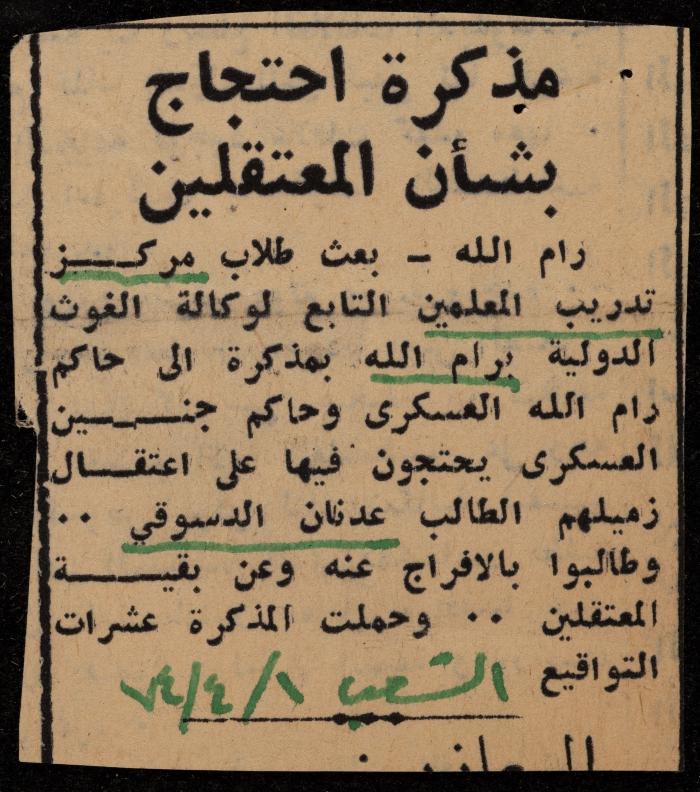 مذكرة احتجاج
بشأن المعتقلين
رام الله - بعث طلاب مركز
تدريب المعلمين التابع لوكالة الغوث
الدولية برام الله بمذكرة الى حاكم
رام الله العسكرى وحاكم جنين
العسكرى يحتجون فيها على اعتقال
زميلهم الطالب عدنان الدسوقي ..
وطالبوا بالافراج عنه وعن بقية
المعتقلين .. وحملت المذكرة عشرات
التواقيع
الشعب ١/٤/٧٤